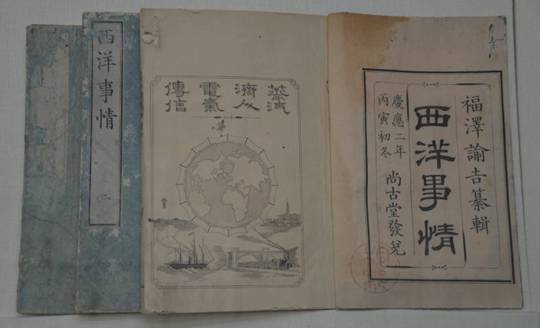 福澤諭吉纂輯
西洋事情
慶應二年
丙寅初冬
尚古堂發兌
蒸滊
濟人
電氣
傳信
西洋事情 一